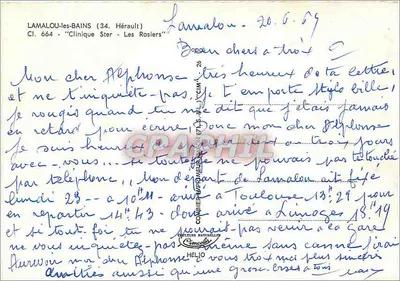 LAMALOU-les-BAINS (34. Hérault)
Cl. 664 - "Clinique Ster - Les Rosiers"
Lamalou - 20.6.69
Bien chers à trois
Mon cher Alphonse très heureux de ta lettre
et ne t'inquiète pas, je t'emporte stylo bille,
je rougis quand tu me dit que j'étais jamais
en retard pour écrire. Donc mon cher Alphonse
je suis heureux trois jours
avec - vous... si toutefois ne pouvais pas
par téléphone, Mon départ de Lamalou ait fixé
lundi 23 - à 10H11 - arrivé à Toulouse 13H29 pour
en repartir 14H43 - donc arrivé à Limoges 18H19
et si toute foi tu ne pouvait - pas venir à la Gare
ne vous inquiétez - pas même sans canne j'irai
Aurevoir mon cher Alphonse vous trois mes plus sincères
Amitiés aussi qu'une grosse bises à tous
COMBIER
HELIO